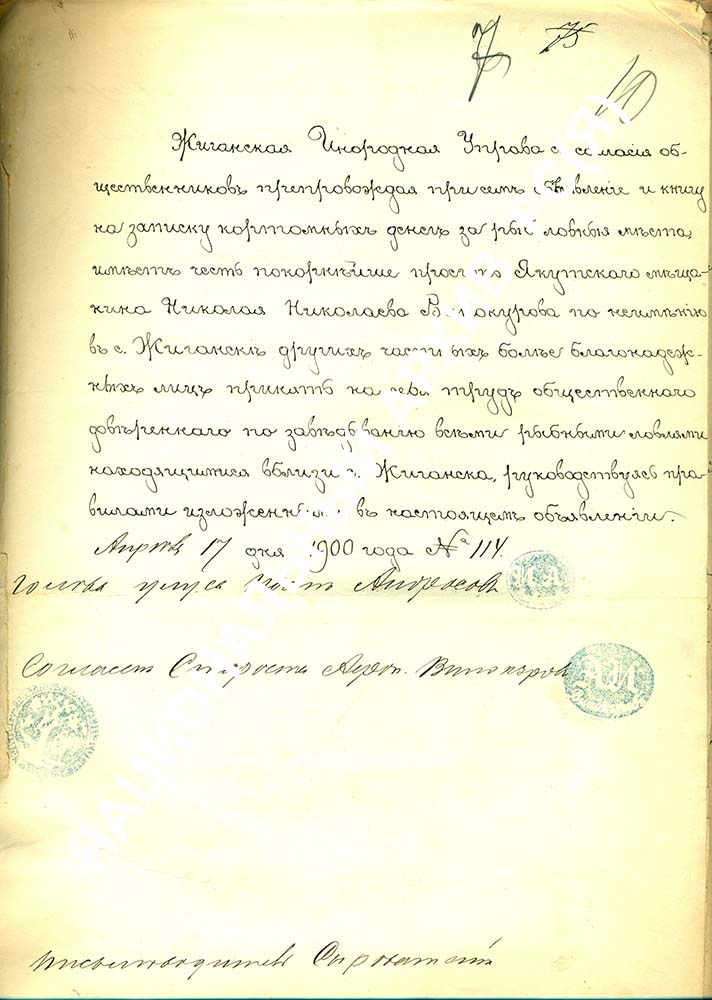 75
10
Жиганская Инородная Управа с согласія об-
щественниковъ препровождая при семъ объявленіе и книгу
на записку кортомныхъ денегъ за рыболовныя мѣста,
имѣетъ честь покорнѣйше просить Якутскаго мѣща-
нина Николая Николаева Винокурова по неимѣнію
въ с. Жиганскѣ другихъ частныхъ болѣе благонадеж-
ныхъ лицъ принять на себя трудъ общественнаго
довѣреннаго по завѣдыванію всѣми рыбными ловлями
находящимися вблизи с. Жиганска, руководствуясь пра-
вилами изложенными въ настоящемъ объявленіи.
Апрѣля 17 дня 1900 года № 114.
Голова улуса Андросовъ
Согласен Староста Винокуров
письмоводитель
НАЦИОНАЛЬНЫЙ АРХИВ